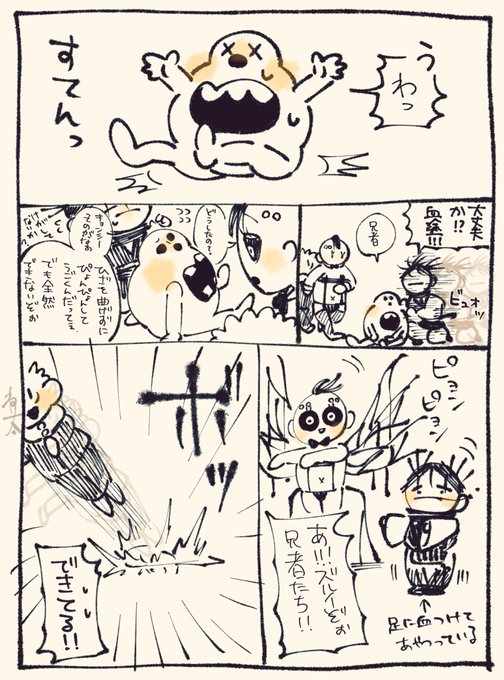 うわっ
すてんっ
大丈夫
か!?
血塗!!!
兄者
ビュオッ
どうしたの?
キョンシー
ってのがなぁ
ヒザを曲げずに
ぴょんぴょんして
うごくんだってぇ
でも全然
できないぞぉ
ピョン
ピョン
あ!!!ズルイぞぉ
兄者たち!!
↑
足に血つけて
あやつっている
ボッ
できてる!!